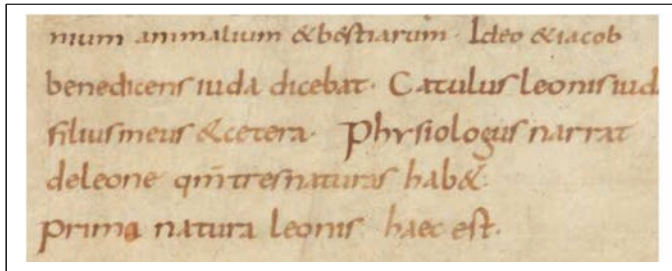 nium animalium &bestiarum· Ideo &iacob
benedicens iuda dicebat· Catulus leonis iud
filius meus &cetera· Physiologus narrat
deleone qm̅ tres naturas hab&·
prima natura leonis haec est·